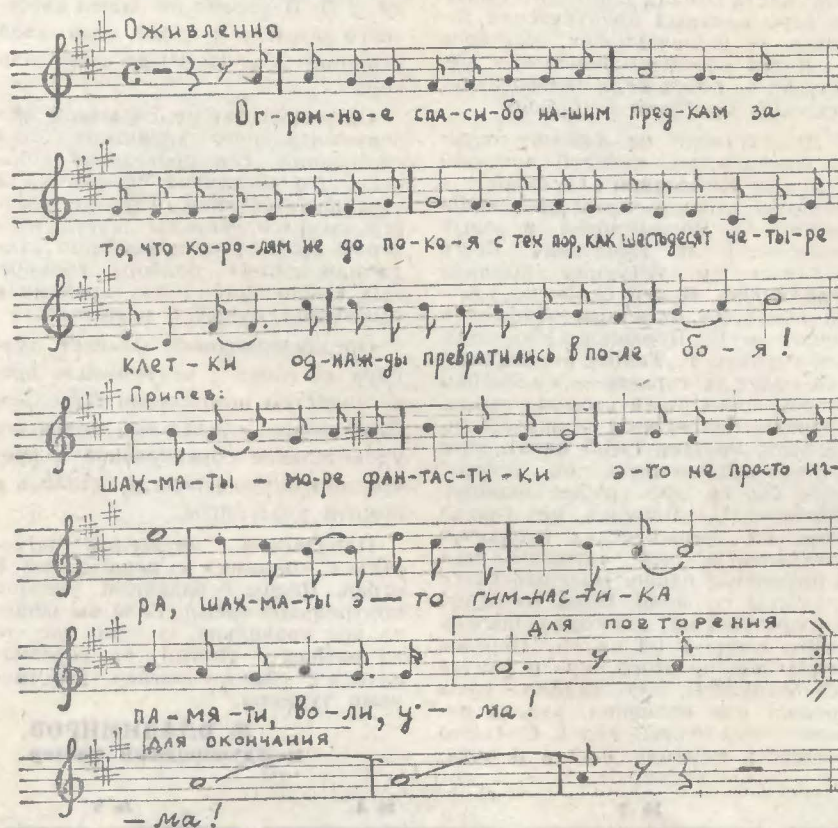 Оживленно
Ог-ром-но-е спа-си-бо на-шим пред-кам за
то, что ко-ро-лям не до по-ко-я с тех пор, как шестьдесят че-ты-ре
клет-ки од-наж-ды превратились в по-ле бо-я!
Припев:
ШАХ-МА-ТЫ – мо-ре фан-тас-ти-ки э-то не просто иг-
РА, ШАХ-МА-ТЫ э — то ГИМ-НАС-ТИ-КА
для повторения
ПА-МЯ-ТИ, ВО-ЛИ, У — МА!
Для окончания
— МА!